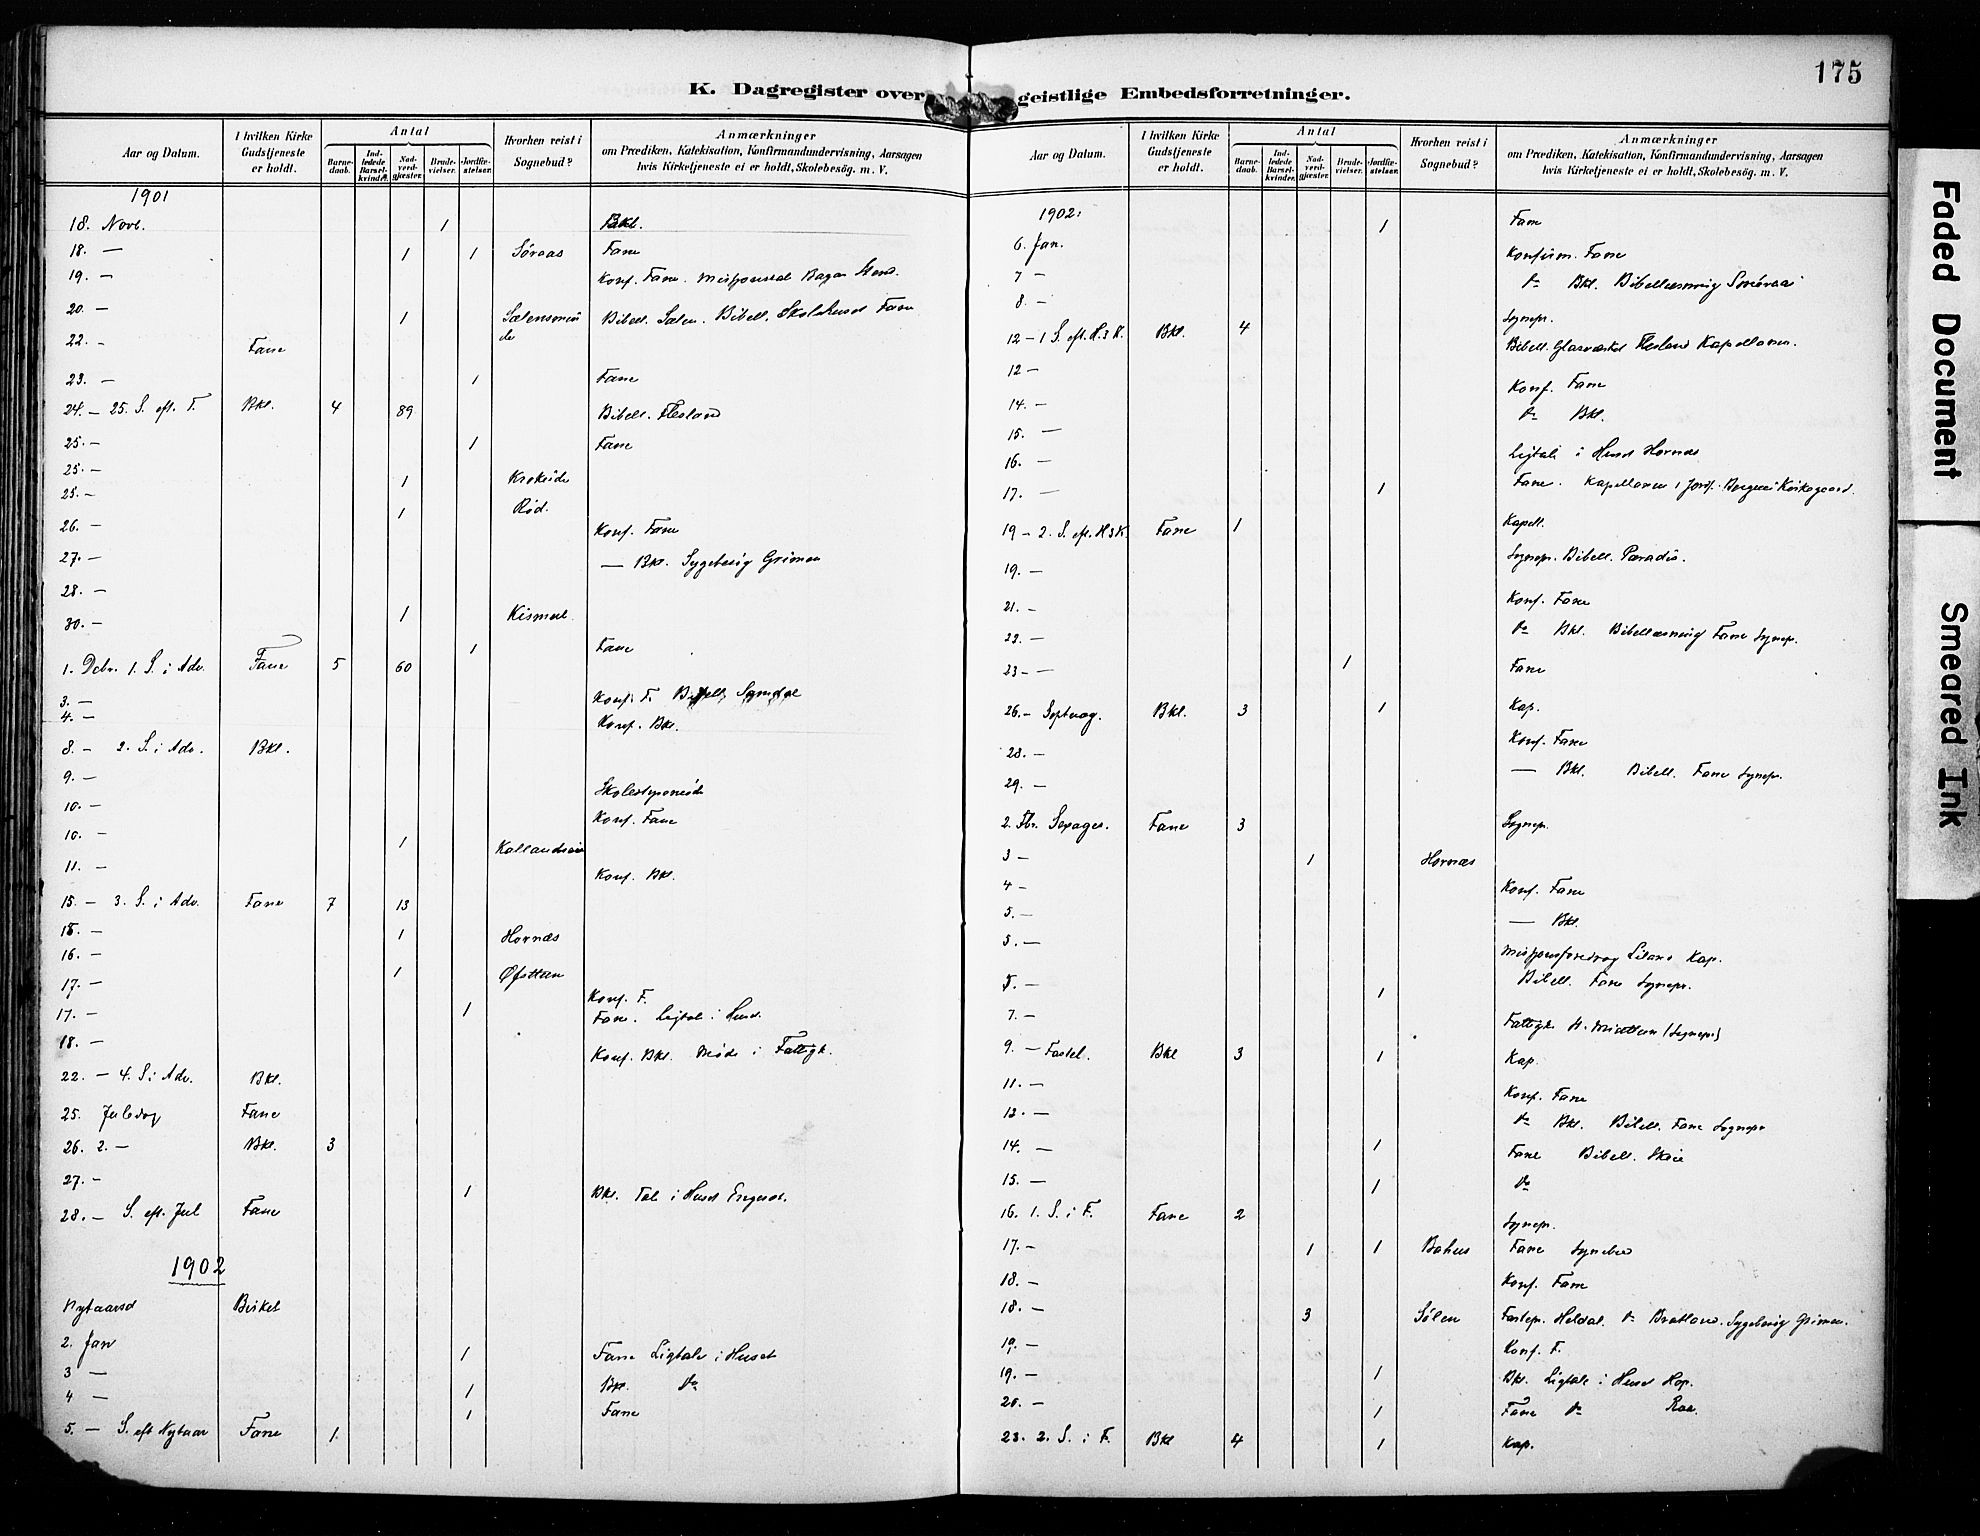 175
K. Dagregister over geistlige Embedsforretninger.
Aar og Datum. | I hvilken Kirke Gudstjeneste er holdt. | Antal | Barnedaab. | Indledede Barselkvinder. | Nadverdgjæster. | Brudevielser. | Jordfæstelser. | Hvorhen reist i Sognebud? | Anmærkninger om Prædiken, Katekisation, Konfirmandundervisning, Aarsagen hvis Kirketjeneste ei er holdt, Skolebesøg. m. V.
1901
18. Novb. 1 Bkl.
18. — 1 1 Søraas Fane
19. — Konf. Fane.
20. — 1 Bibell. Sælen. Bibell. Skolehuset Fane
22. - Fane
23. — 1 Fane
24. — 25. S. eft. T. Bkl. 4 89 Bibell. Flesland
25. — 1 Fane
25. — 1 Krokeide
25. — 1 Rød.
26. — Konf. Fane
27. — — Bkl. Sygebesøg Grimen
28. —
30. — 1 Kismul
1. Dcbr. 1. S. i Adv. Fane 5 60 1 Fane
3. — Konf. F. Bibell.
4. — Konf. Bkl.
8. — 2. S. i Adv. Bkl.
9. —
10. — Konf. Fane
10. — 1
11. — Konf. Bkl.
15. — 3. S. i Adv. Fane 7 13
15. — 1 Hornæs
16. — 1 Øfsttun
17. — Konf. F.
17. — 1 Fane. Ligtale i Huset.
18. — Konf. Bkl. Møde i Fattigk.
22. — 4. S. i Adv. Bkl.
25. Juledag Fane
26. 2. — Bkl. 3
27. — 1 Bkl. Tale i Huset
28. — S. eft. Jul Fane
1902
Nytaarsd Birkel
2. Jan 1 Fane Ligtale i Huset
3 — 1 Bkl. Do
4 — 1 Fane
5. — S. eft Nytaar Fane 1.
Aar og Datum. | I hvilken Kirke Gudstjeneste er holdt. | Antal | Barnedaab. | Indledede Barselkvinder. | Nadverdgjæster. | Brudevielser. | Jordfæstelser. | Hvorhen reist i Sognebud? | Anmærkninger om Prædiken, Katekisation, Konfirmandundervisning, Aarsagen hvis Kirketjeneste ei er holdt, Skolebesøg. m. V.
1902:
6. Jan. 1 Fane
7 — Konfirm. Fane
8. — Do Bkl. Bibellæsning
12 — 1 S. eft. H. 3 K. Bkl. 4 Sognepr.
12 — Bibell. Glasværket Flesland Kapellanen.
14. — Konf. Fane
15. — Do Bkl.
16. — Ligtale i Huset Hornæs
17. — 1 Fane. Kapellanen
19 — 2. S. eft. H 3 K. Fane 1 Kapell.
19. — Sognepr. Bibell. Paradis.
21. — Konf. Fane
22. — Do Bkl. Bibellæsning Fane Sognep.
23 — 1 Fane
26. — Septuag. Bkl. 3 1 Kap.
28. — Konf. Fane
29. — — Bkl. Bibell. Fane Sognepr.
2. Fbr. Sexages. Fane 3 Sognepr.
3 — 1 Hornæs
4 — Konf. Fane
5. — — Bkl.
5. — Missionsforedrag Kap.
5. — 1 Bibell. Fane Sognepr.
7. — Fattigk
9. — Fastel. Bkl 3 1 Kap.
11. — Konf. Fane
12. — Do Bkl. Bibell. Fane Sognepr
14. — 1 Fane Bibell. Skeie
15. — 1 Do
16. 1. S. i F. Fane 2 Sognepr.
17. — 1 1 Fane
18. — Konf. Fane
18. — 3 Sølen Fastepr. Heldal. Do Bratland. Sygebesøg Grimen.
19. — Konf. F.
19. — 1 Bkl. Ligtale i Huset Hop.
20. — 1 Fane Do
23. 2. S. i F. Bkl 4 1 Kap.
Faded Document
Smeared Ink